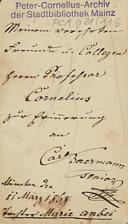 Peter-Cornelius-Archiv
der Stadtbibliothek Mainz
Meinem verehrten
Freunde u. Collegen
Herrn Professor
Cornelius
zur Erinnerung
an
Carl Baermann
senior
München den
11 März 1868